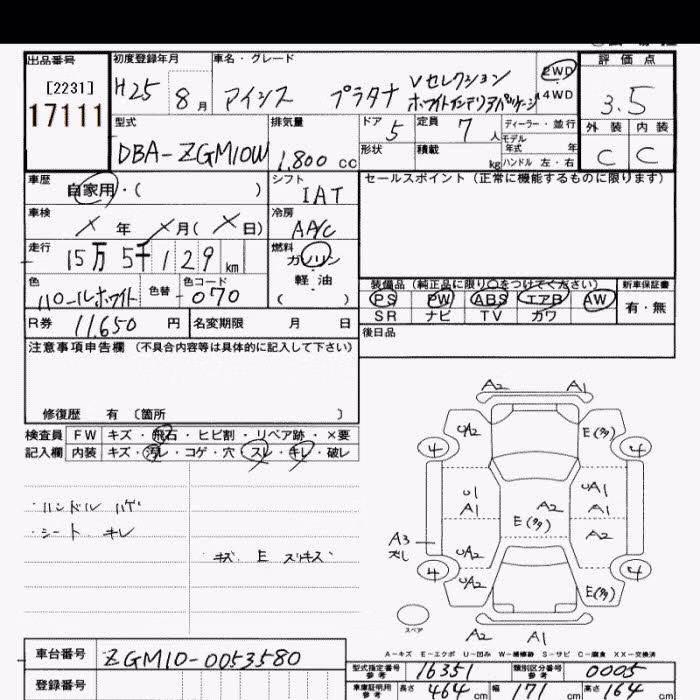 出品番号
[2231]
17111
初度登録年月
H25 8月
車名・グレード
アイシス プラタナ Vセレクション
ホワイトインテリアパッケージ
2WD
4WD
評価点
3.5
外装 内装
C C
型式
DBA-ZGM10W
排気量
1.800 cc
ドア 5
定員 7 人
形状
積載 kg
ディーラー・並行
モデル年式 年
ハンドル 左・右
車歴
自家用・( )
シフト
IAT
セールスポイント(正常に機能するものに限ります)
車検
× 年 × 月(×日)
冷房
AA/C
走行
15万5千129 km
燃料
ガソリン
軽油
( )
色
パールホワイト
色替
色コード
070
装備品(純正品に限り○をつけてください)
PS PW ABS エアB AW
SR ナビ TV カワ
新車保証書
有・無
R券 11,650 円
名変期限 月 日
後日品
注意事項申告欄(不具合内容等は具体的に記入して下さい)
修復歴 有〔箇所 〕
検査員記入欄
FW キズ・飛石・ヒビ割・リペア跡・×要
内装 キズ・汚レ・コゲ・穴・スレ・キレ・破レ
・ハンドル ハゲ
・シート キレ
・キズ E スリキズ
A2 A1
UA2 E(多)
4 4
U1 A1
UA1 A1
A2
E(多)
A3
A2
UA2
4 4
UA2 E(多)
スペア
A2 A1
A-キズ E-エクボ U-凹み W-補修跡 S-サビ C-腐食 XX-交換済
車台番号
ZGM10-0053580
登録番号
型式指定番号参考 16351
類別区分番号参考 0005
車庫証明用参考 長さ 464 cm 幅 171 cm 高さ 164 cm